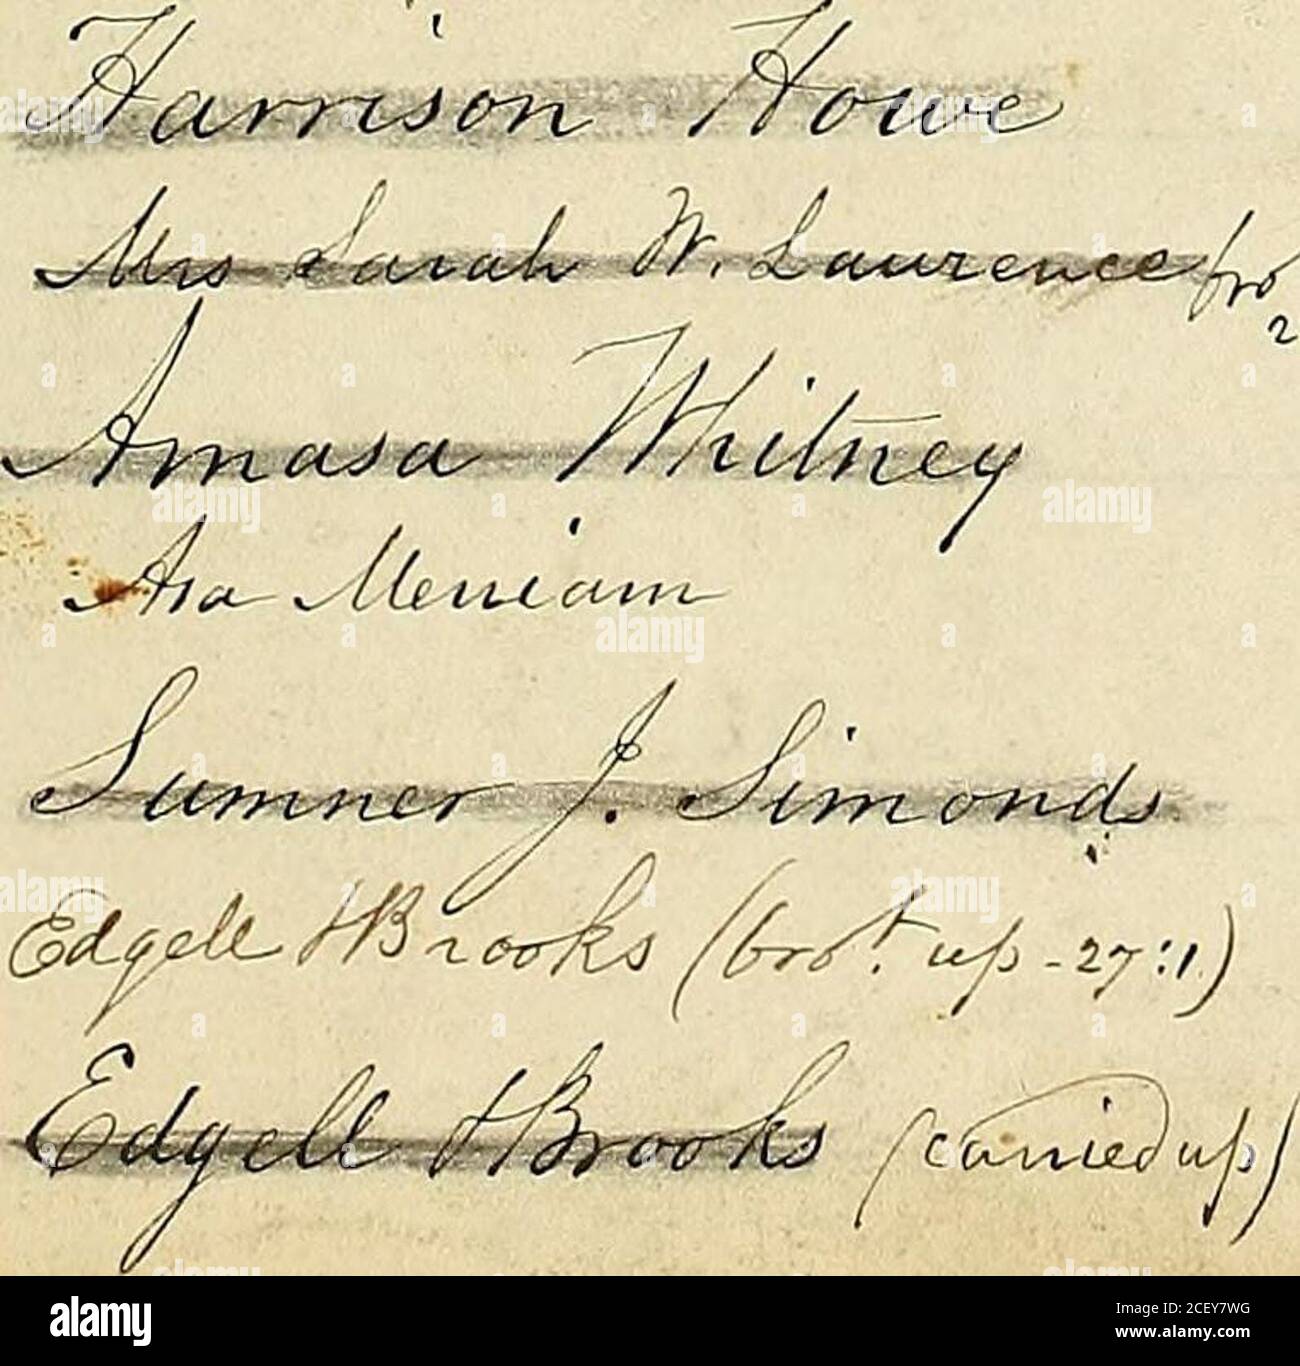 Harrison Howe
Mrs Sarah W. Lawrence fro
2
Amasa Whitney
Asa Merriam
Sumner J. Simonds
Edgell H Brooks (bro't. up - 27:1.)
Edgell H Brooks (carried up)
alamy
Image ID: 2CEY7WG
www.alamy.com